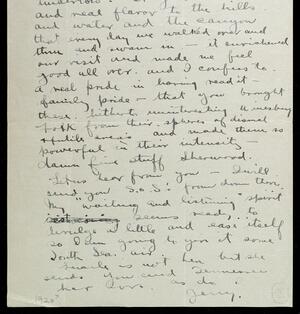 and real flavor to the hills
and water and the canyon
that every day we walked over and
thru and swam in – it enriched
our visit and made me feel
good all over. and I confess to
a real pride in having read it –
family pride – that you brought
these hitherto uninteresting
folk from their spheres of dismal
and made them so
powerful in their intensity –
damn fine stuff Sherwood.
Let us hear from you – I will
send you S.O.S. from down there.
My "waiting and listening" spirit
seems ready to
indulge a little and ease itself
so I am going to get it some
South Sea air
is not here but she
sends you and Tennessee
her love. as do I
Jerry.
1920?